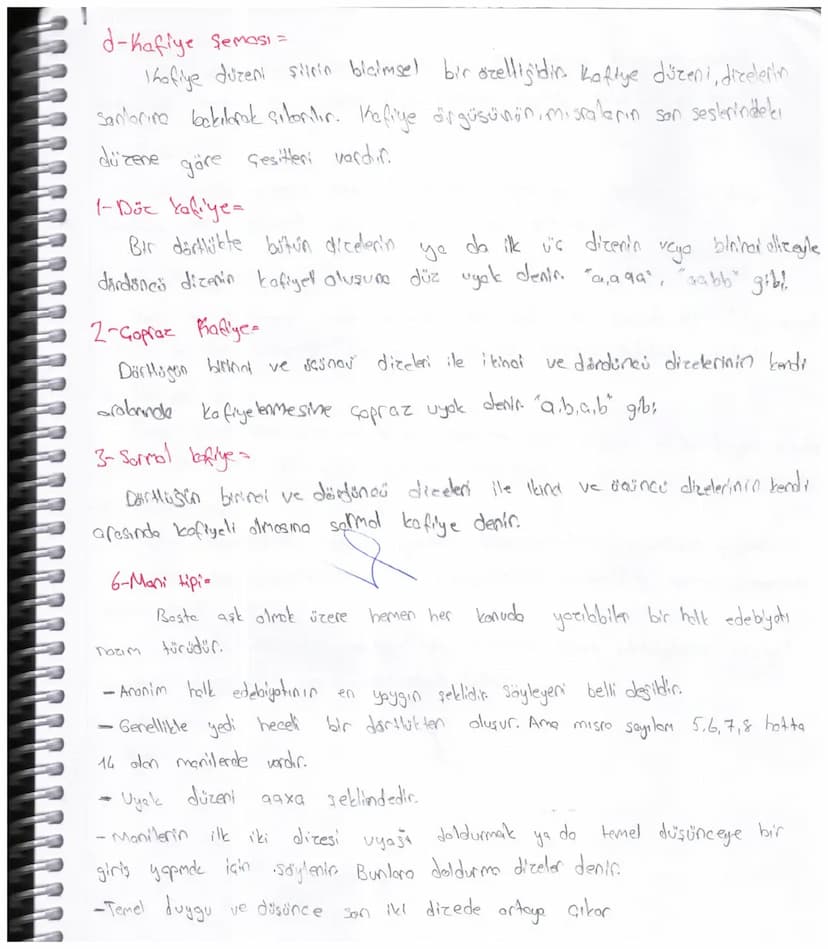 d-Kafiye Şeması=
Kafiye düzeni şiirin biçimsel bir özelliğidir. Kafiye düzeni, dizelerin
sonlarına bakılarak çıkarılır. Kafiye örgüsünün, mısraların son seslerindeki
düzene göre çeşitleri vardır.
1-Düz kafiye=
Bir dörtlükte bütün dizelerin ya da ilk üç dizenin veya birinci dizeyle
dördüncü dizenin kafiyeli oluşuna düz uyak denir. "a,a,aa", "aabb" gibi
2-Çapraz Kafiye=
Dörtlüğün birinci ve üçüncü dizeleri ile ikinci ve dördüncü dizelerinin kendi
aralarında kafiyelenmesine çapraz uyak denir. "a,b,a,b" gibi
3-Sarmal kafiye=
Dörtlüğün birinci ve dördüncü dizeleri ile ikinci ve üçüncü dizelerinin kendi
arasında kafiyeli olmasına sarmal kafiye denir.
6-Mani tipi=
Başta aşk olmak üzere hemen her konuda yazılabilen bir halk edebiyatı
nazım türüdür.
-Anonim halk edebiyatının en yaygın şeklidir. Söyleyeni belli değildir.
-Genellikle yedi heceli bir dörtlükten oluşur. Ama mısra sayıları 5,6,7,8 hatta
14 olan manilerde vardır.
-Uyak düzeni aaxa şeklindedir.
-Manilerin ilk iki dizesi uyağı doldurmak ya da temel düşünceye bir
giriş yapmak için söylenir. Bunlara doldurma dizeler denir.
-Temel duygu ve düşünce son iki dizede ortaya çıkar